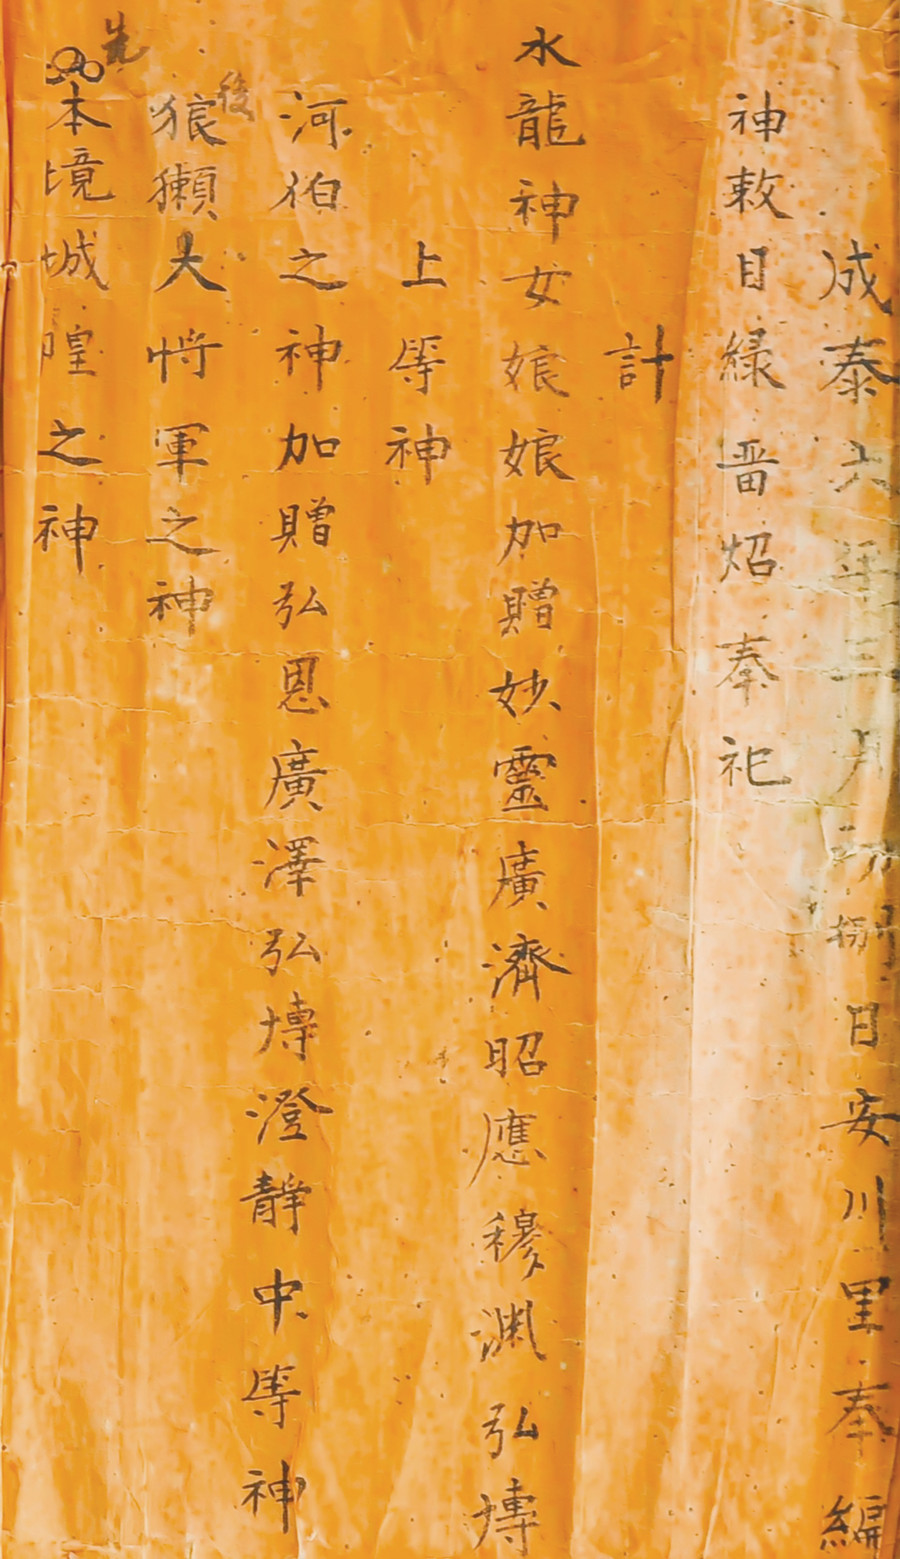 成泰六年三月初捌日安川里奉編
神敕目綠畨炤奉祀
計
水龍神女娘娘加贈妙靈廣濟昭應穆渊弘慱
上等神
河伯之神加贈弘恩廣澤弘慱澄靜中等神
後
狼獺大将軍之神
先
本境城隍之神